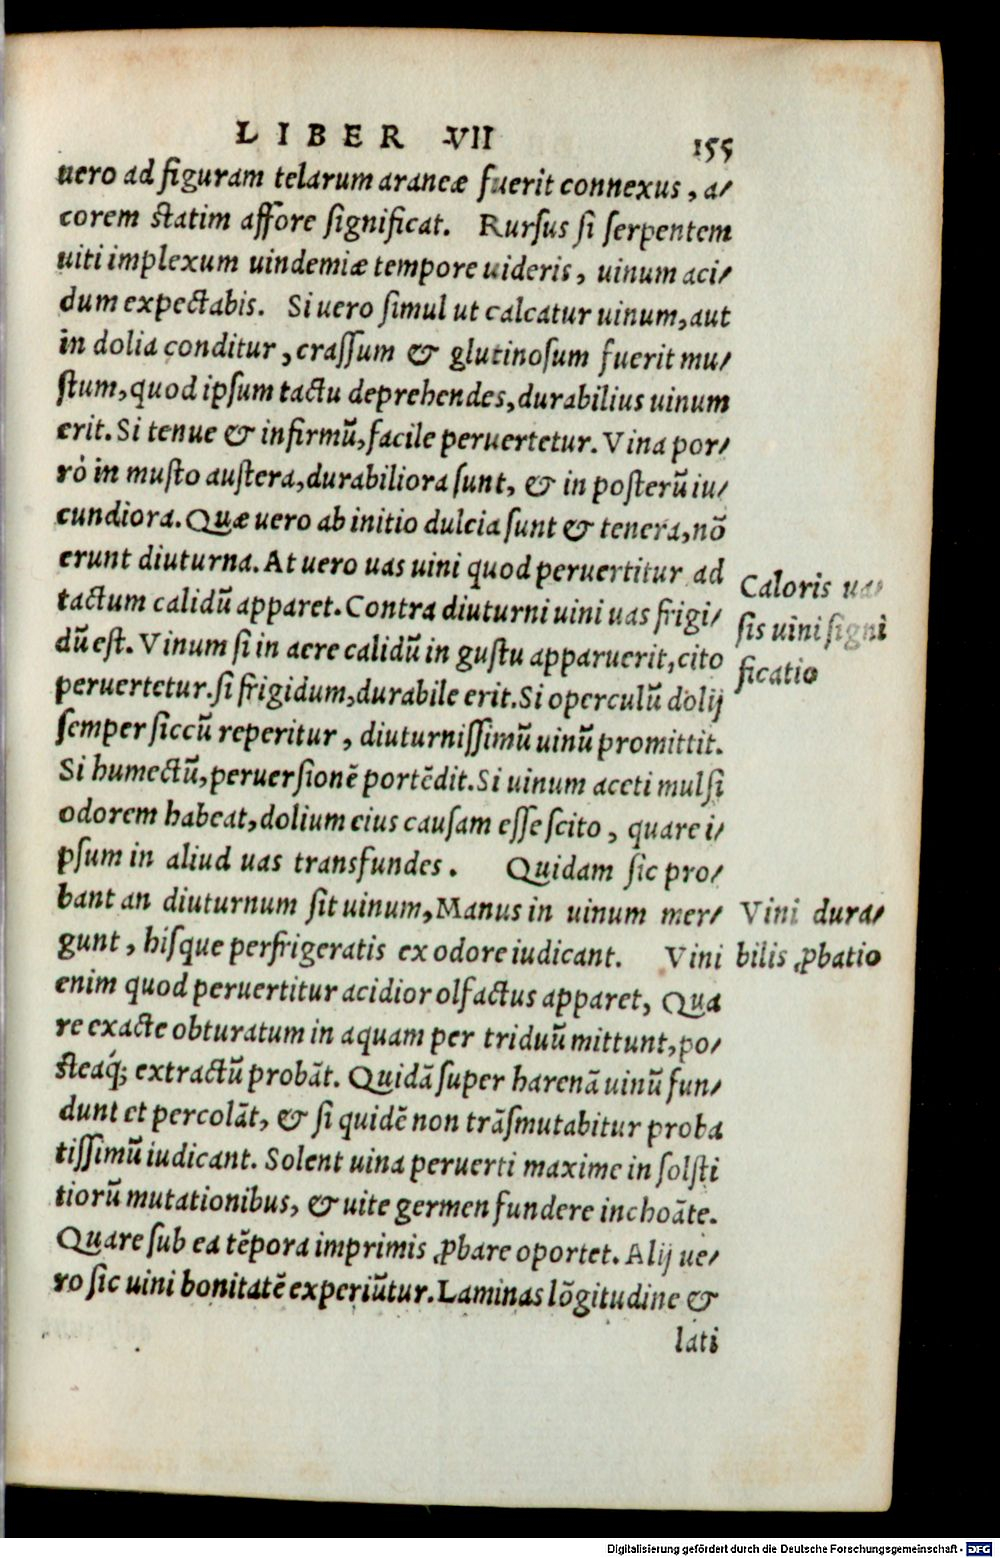 LIBER VII 155
uero ad figuram telarum araneæ fuerit connexus, a/
corem statim affore significat. Rursus si serpentem
uiti implexum uindemiæ tempore uideris, uinum aci/
dum expectabis. Si uero simul ut calcatur uinum, aut
in dolia conditur, crassum & glutinosum fuerit mu/
stum, quod ipsum tactu deprehendes, durabilius uinum
erit. Si tenue & infirmū, facile peruertetur. Vina por/
rò in musto austera, durabiliora sunt, & in posterū iu/
cundiora. Quæ uero ab initio dulcia sunt & tenera, nō
erunt diuturna. At uero uas uini quod peruertitur ad
tactum calidū apparet. Contra diuturni uini uas frigi/
dū est. Vinum si in aere calidū in gustu apparuerit, cito
peruertetur. si frigidum, durabile erit. Si operculū dolij
semper siccū reperitur, diuturnissimū uinū promittit.
Si humectū, peruersionē portēdit. Si uinum aceti mulsi
odorem habeat, dolium eius causam esse scito, quare i/
psum in aliud uas transfundes. Quidam sic pro/
bant an diuturnum sit uinum, Manus in uinum mer/
gunt, hisque perfrigeratis ex odore iudicant. Vini
enim quod peruertitur acidior olfactus apparet, Qua
re exacte obturatum in aquam per triduū mittunt, po/
steaq́; extractū probāt. Quidā super harenā uinū fun/
dunt et percolāt, & si quidē non trāsmutabitur proba
tissimū iudicant. Solent uina peruerti maxime in solsti
tiorū mutationibus, & uite germen fundere inchoāte.
Quare sub ea tēpora imprimis ꝓbare oportet. Alij ue/
ro sic uini bonitatē experiūtur. Laminas lōgitudine &
lati
Caloris ua/
sis uini signi
ficatio
Vini dura/
bilis ꝓbatio
Digitalisierung gefördert durch die Deutsche Forschungsgemeinschaft - DFG